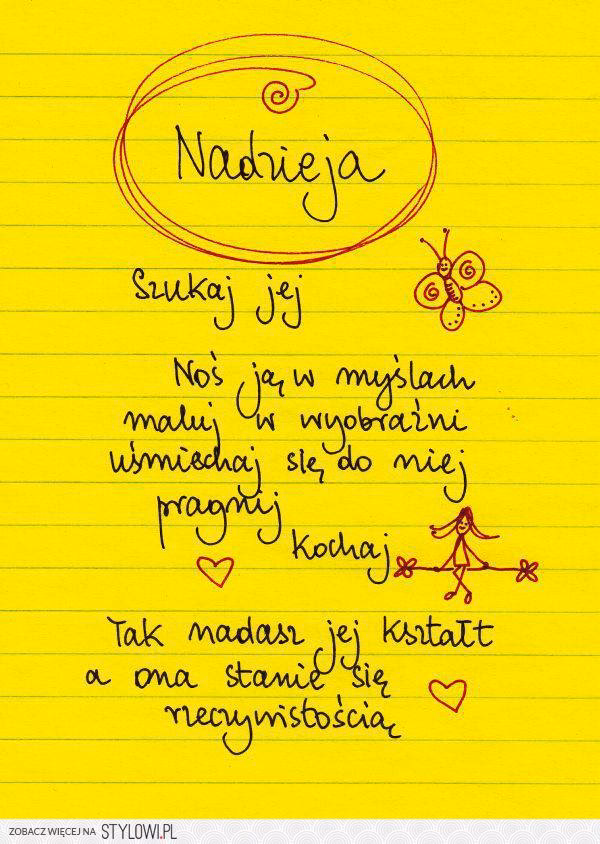 Nadzieja
Szukaj jej
Noś ją w myślach
maluj w wyobraźni
uśmiechaj się do niej
pragnij
kochaj
Tak nadasz jej kształt
a ona stanie się
rzeczywistością
ZOBACZ WIĘCEJ NA STYLOWI.PL